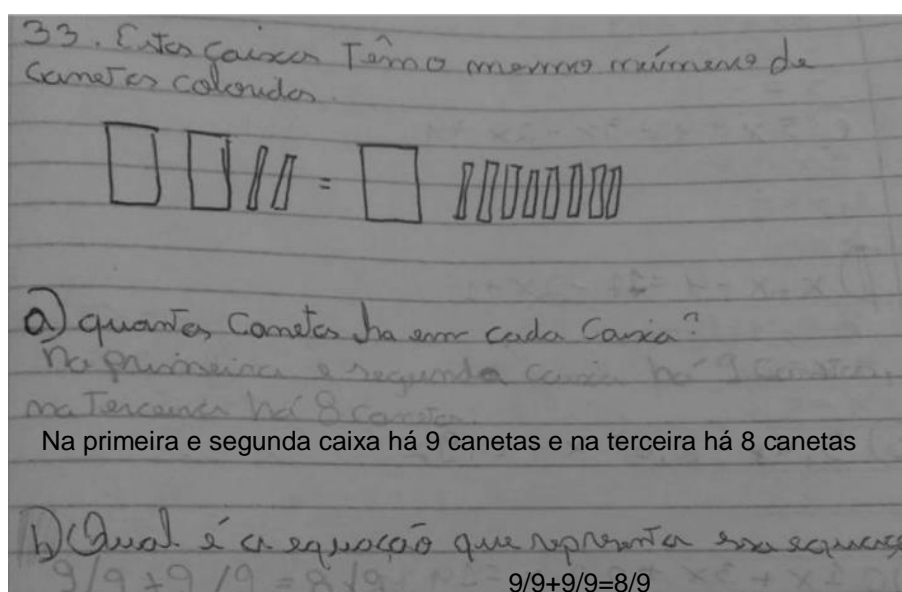 33. Estas caixas Têm o mesmo número de
canetas coloridas.
=
a) quantas canetas ha em cada Caixa?
na primeira e segunda caixa há 9 canetas,
na Terceira há 8 canetas
Na primeira e segunda caixa há 9 canetas e na terceira há 8 canetas
b) Qual é a equação que representa essa
9/9+9/9=8/9
9/9+9/9=8/9